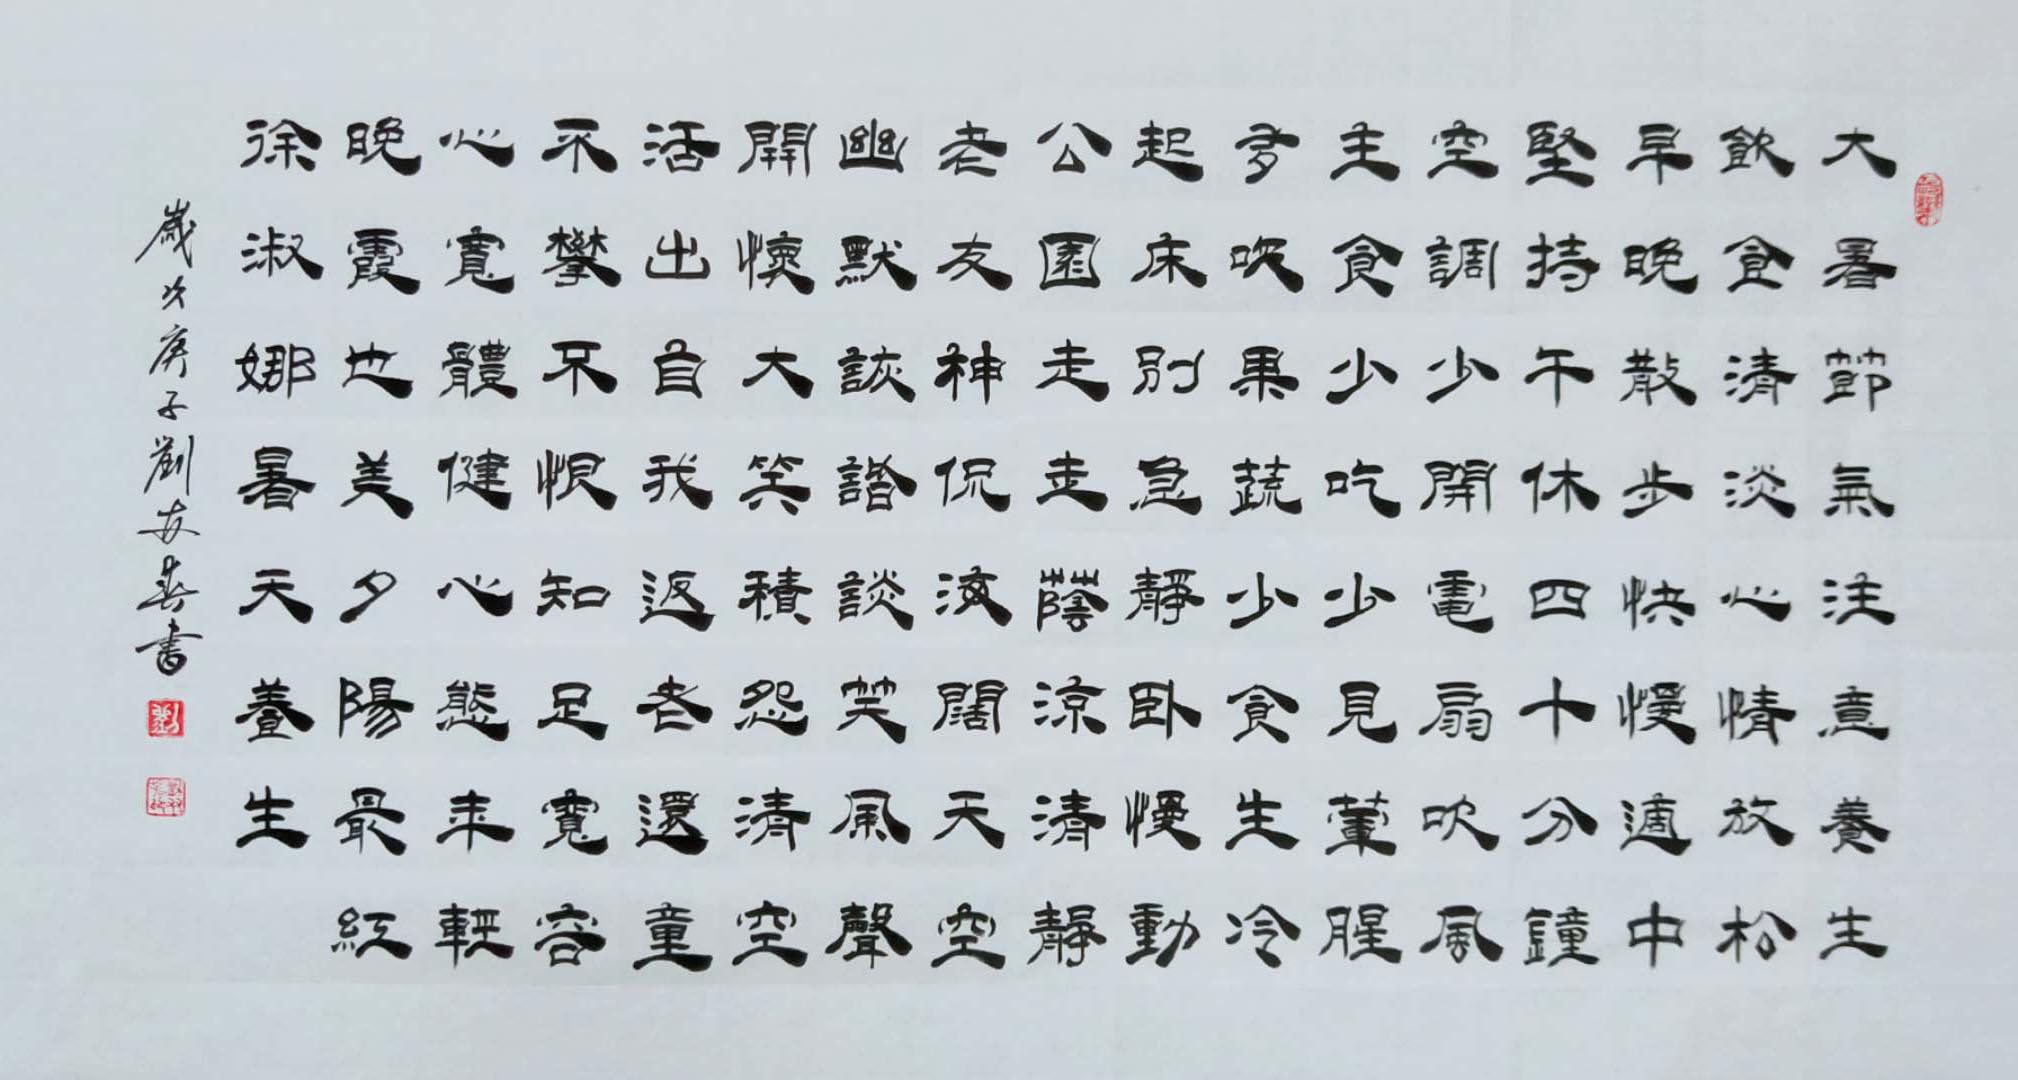 大暑節氣注意養生
飲食清淡心情放松
早晚散步快慢適中
堅持午休四十分鐘
空調少開電扇吹風
主食少吃少見葷腥
多吹果蔬少食生冷
起床別急靜卧慢動
公園走走蔭涼清靜
老友神侃海闊天空
幽默詼諧談笑風聲
開懷大笑積怨清空
活出自我返老還童
不攀不恨知足寬容
心寬體健心態年輕
晚霞也美夕陽最紅
徐淑娜暑天養生
歲次庚子劉安春書
劉